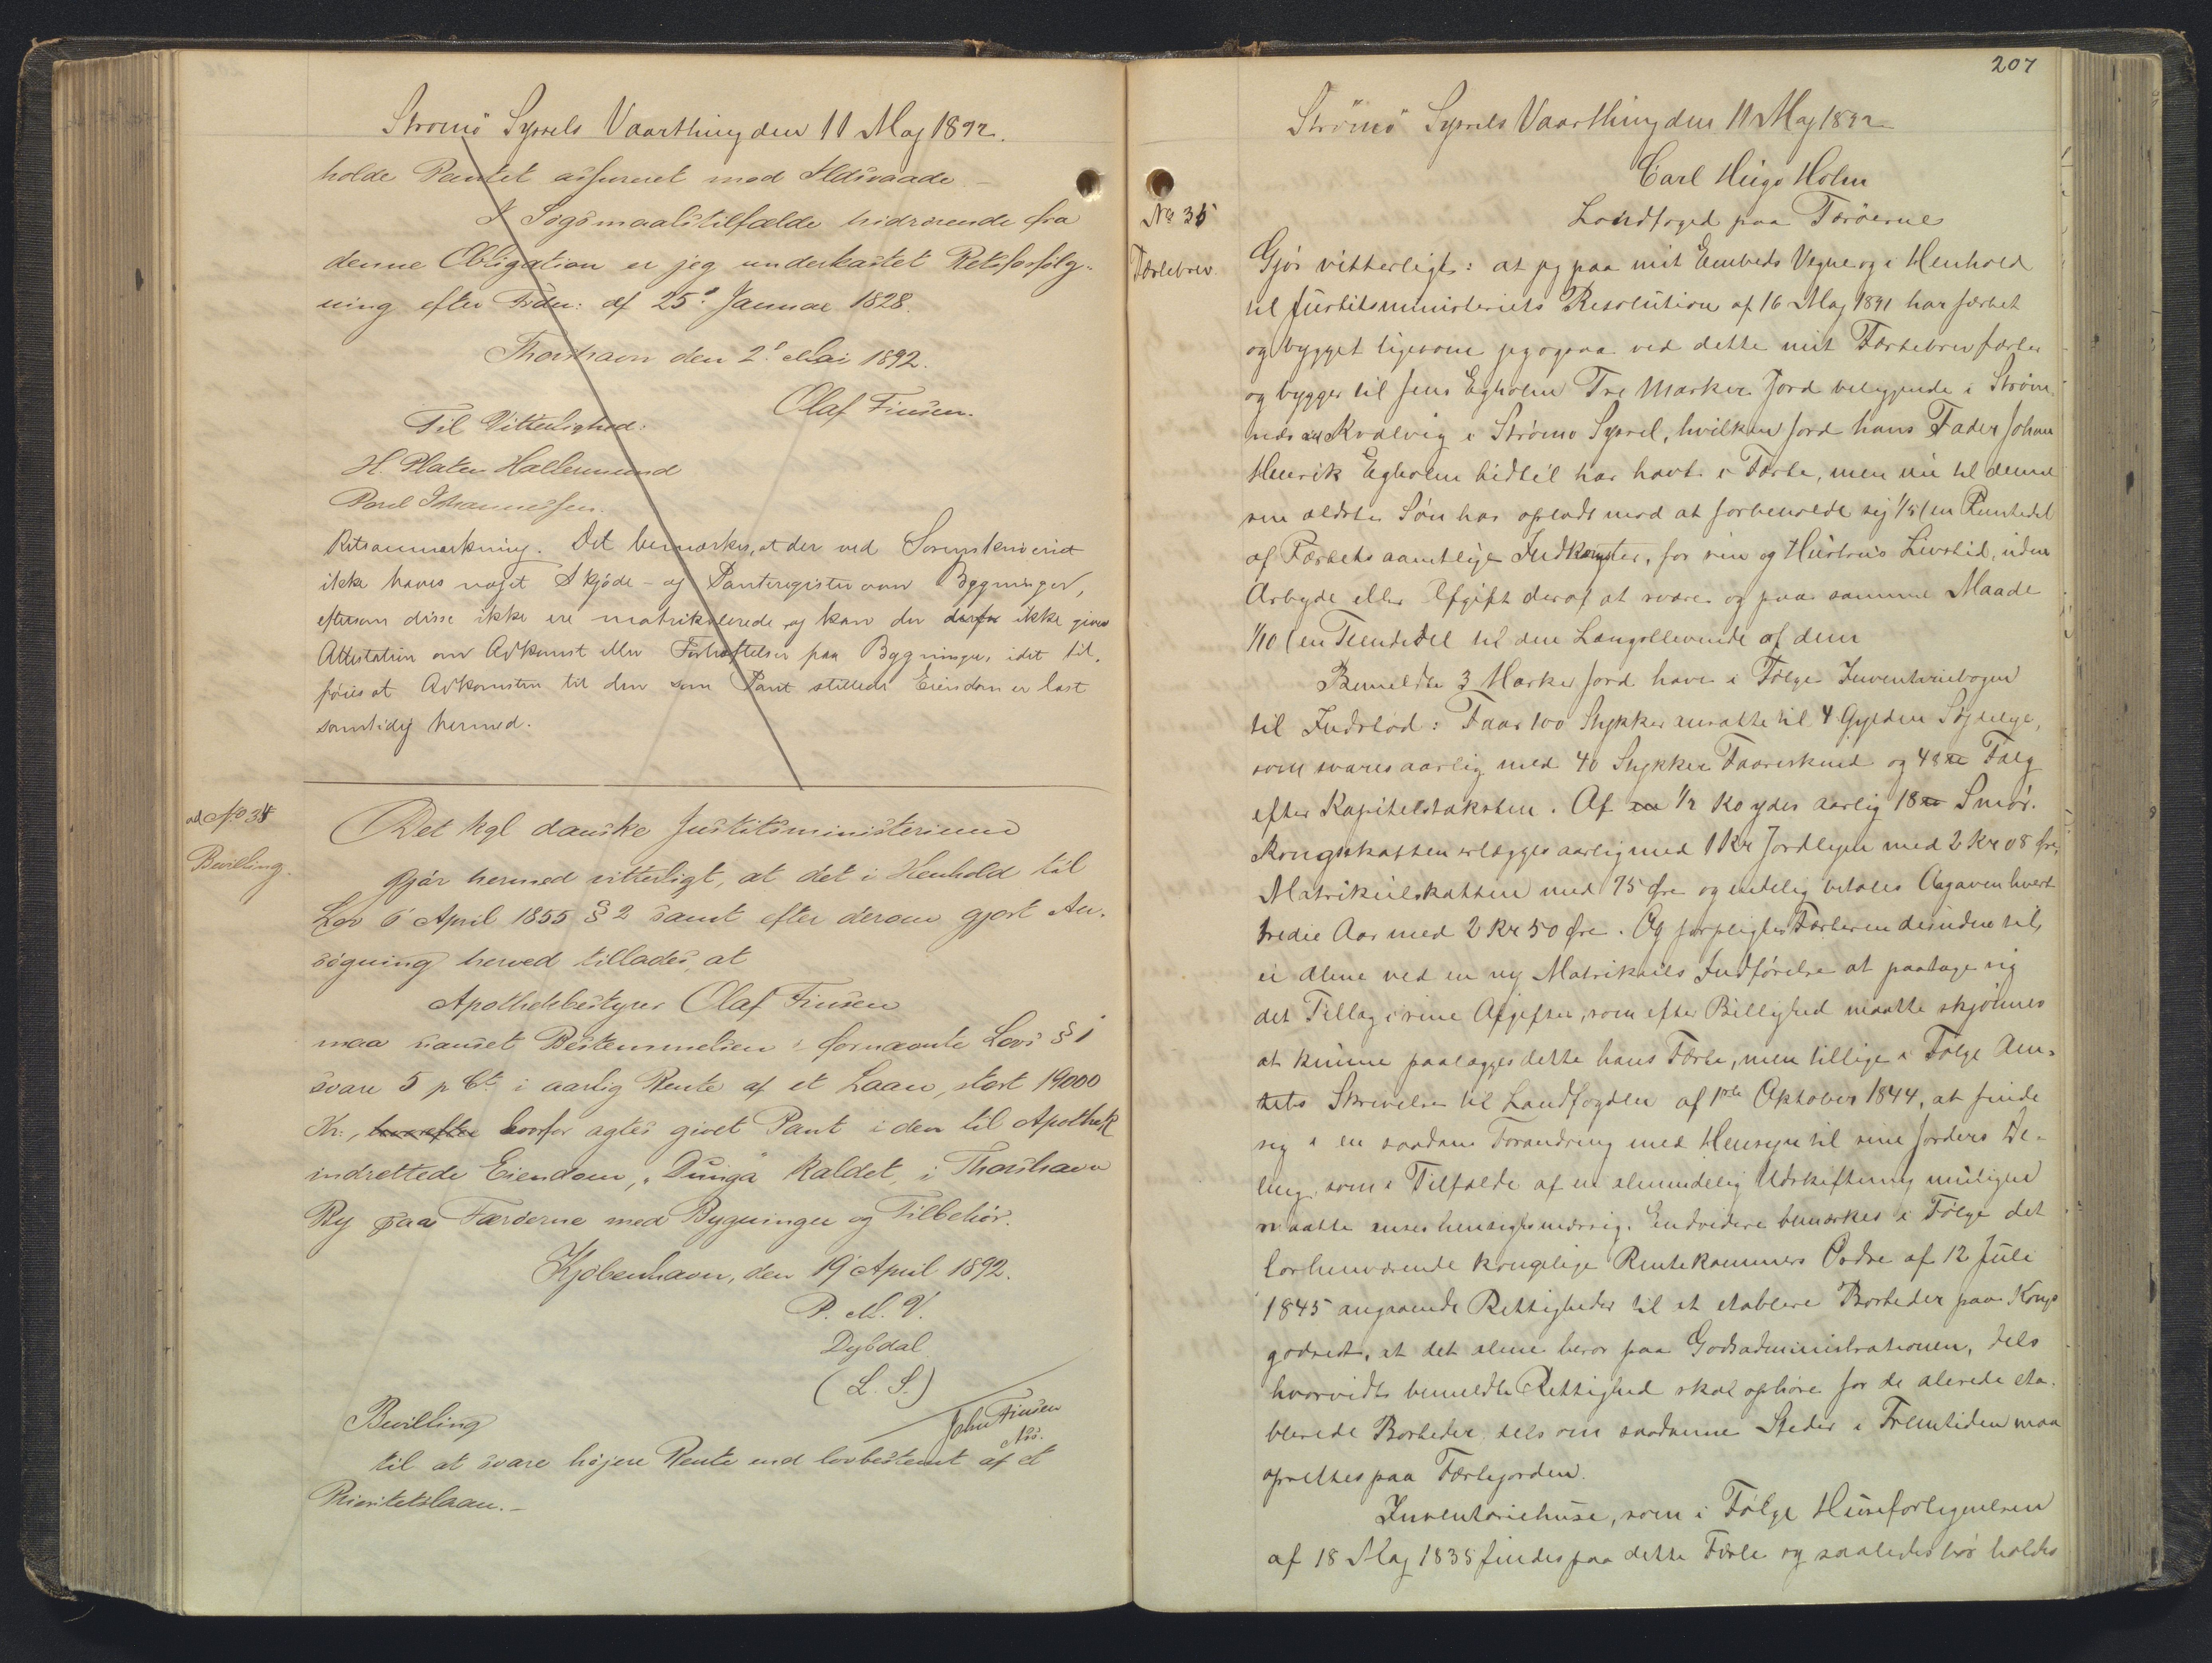 Strømø Syssels Vaarthing den 11 Maj 1892.
holde Pantet assureret mod Ildsvaade –
I Søgsmaalstilfælde hidrørende fra
denne Obligation er jeg underkastet Retsforfølg-
ning efter Frdn: af 25' Januar 1828.
Thorshavn den 2' Mai 1892.
Olaf Finsen.
Til Vitterlighed:
H. Platen Hallermund
Poul Johannessen.
Retsanmærkning. Det bemærkes, at der ved Sorenskriveriet
ikke haves noget Skjøde- og Panteregister over Bygninger,
eftersom disse ikke ere matrikulerede og kan der derfor ikke gives
Attestation om Adkomst eller Forhæftelser paa Bygninger, idet til-
føies at Adkomsten til den som Pant stillede Eiendom er læst
samtidig hermed.
ad No 34
Bevilling.
Det kgl danske Justitsministerium
gjør hermed vitterligt, at det i Henhold til
Lov 6' April 1855 § 2 samt efter derom gjort An-
søgning herved tillades, at
Apothekbestyrer Olaf Finsen
maa uanset Bestemmelsen i fornævnte Lovs § 1
svare 5 p Ct. i aarlig Rente af et Laan, stort 19000
Kr., hvorefter hvorfor agtes givet Pant i den til Apothek
indrettede Eiendom, "Dunga" kaldet, i Thorshavn
By paa Færøerne med Bygninger og Tilbehør.
Kjøbenhavn, den 19' April 1892.
P. M. V.
Dybdal
(L. S.)
John Finsen
Ass.
Bevilling
til at svare højere Rente end lovbestemt af et
Prioritetslaan. –
207
Strömö Syssels Vaarthing den 11 Maj 1892
Carl Hugo Holm
Landfoged paa Færöerne
No 35
Fæstebrev.
Gjør vitterligt: at jeg paa mit Embeds Vegne og i Henhold
til Justitsministeriets Resolution af 16 Maj 1891 har fæstet
og bygget ligesom jeg ogsaa ved dette mit Fæstebrev fæster
og bygger til Jens Egholm Tre Marker Jord beliggende i Strøm
næs ad Kvalvig i Strømø Syssel, hvilken Jord hans Fader Johan
Henrik Egholm hidtil har havt i Fæste, men nu til denne
sin ældste Søn har opladt mod at forbeholde sig 1/5 (en Femtedel
af Fæstets samtlige Indkomster, for sin og Hustrus Livstid, uden
Arbejde eller Afgift deraf at svare og paa samme Maade
1/10 (en Tiendedel til den Længstlevende af dem
Bemeldte 3 Marker Jord have i Følge Inventariebogen
til Indstød: Faar 100 Stykker ansatte til 4 Gylden Søjdelye,
som svares aarlig med 40 Stykker Faareskind og 48 ℔ Talg
efter Kapitelstaksten. Af en 1/2 Ko ydes aarlig 18 ℔ Smør.
Kongsskatten erlægges aarlig med 1 Kr Jordlejen med 2 Kr 08 Øre,
Matrikulskatten med 75 Øre og endelig betales Aagaven hvert
tredie Aar med 2 Kr 50 Øre. Og forpligtes Fæsteren desuden til,
ei alene ved en ny Matrikuls Indførelse at paatage sig
det Tillæg i sine Afgifter, som efter Billighed maatte skjønnes
at kunne paalægges dette hans Fæste, men tillige i Følge Am-
tets Skrivelse til Landfogden af 1ste Oktober 1844, at finde
sig i en saadan Forandring med Hensyn til sine Jorders De-
ling, som i Tilfælde af en almindelig Udskiftning muligen
maatte anses hensigtsmæssig. Endvidere bemærkes i Følge det
forhenværende kongelige Rentekammers Ordre af 12 Juli
1845 angaaende Rettigheder til at etablere Bosteder paa Kongs
godset, at det alene beror paa Godsadministrationen, dels
hvorvidt bemeldte Rettighed skal ophøre for de allerede eta-
blerede Bosteder, dels om saadanne Steder i Fremtiden maa
oprettes paa Fæstejorden.
Inventariehuse, som i Følge Huseforligelsen
af 18 Maj 1835 findes paa dette Fæste og saaledes bør holdes